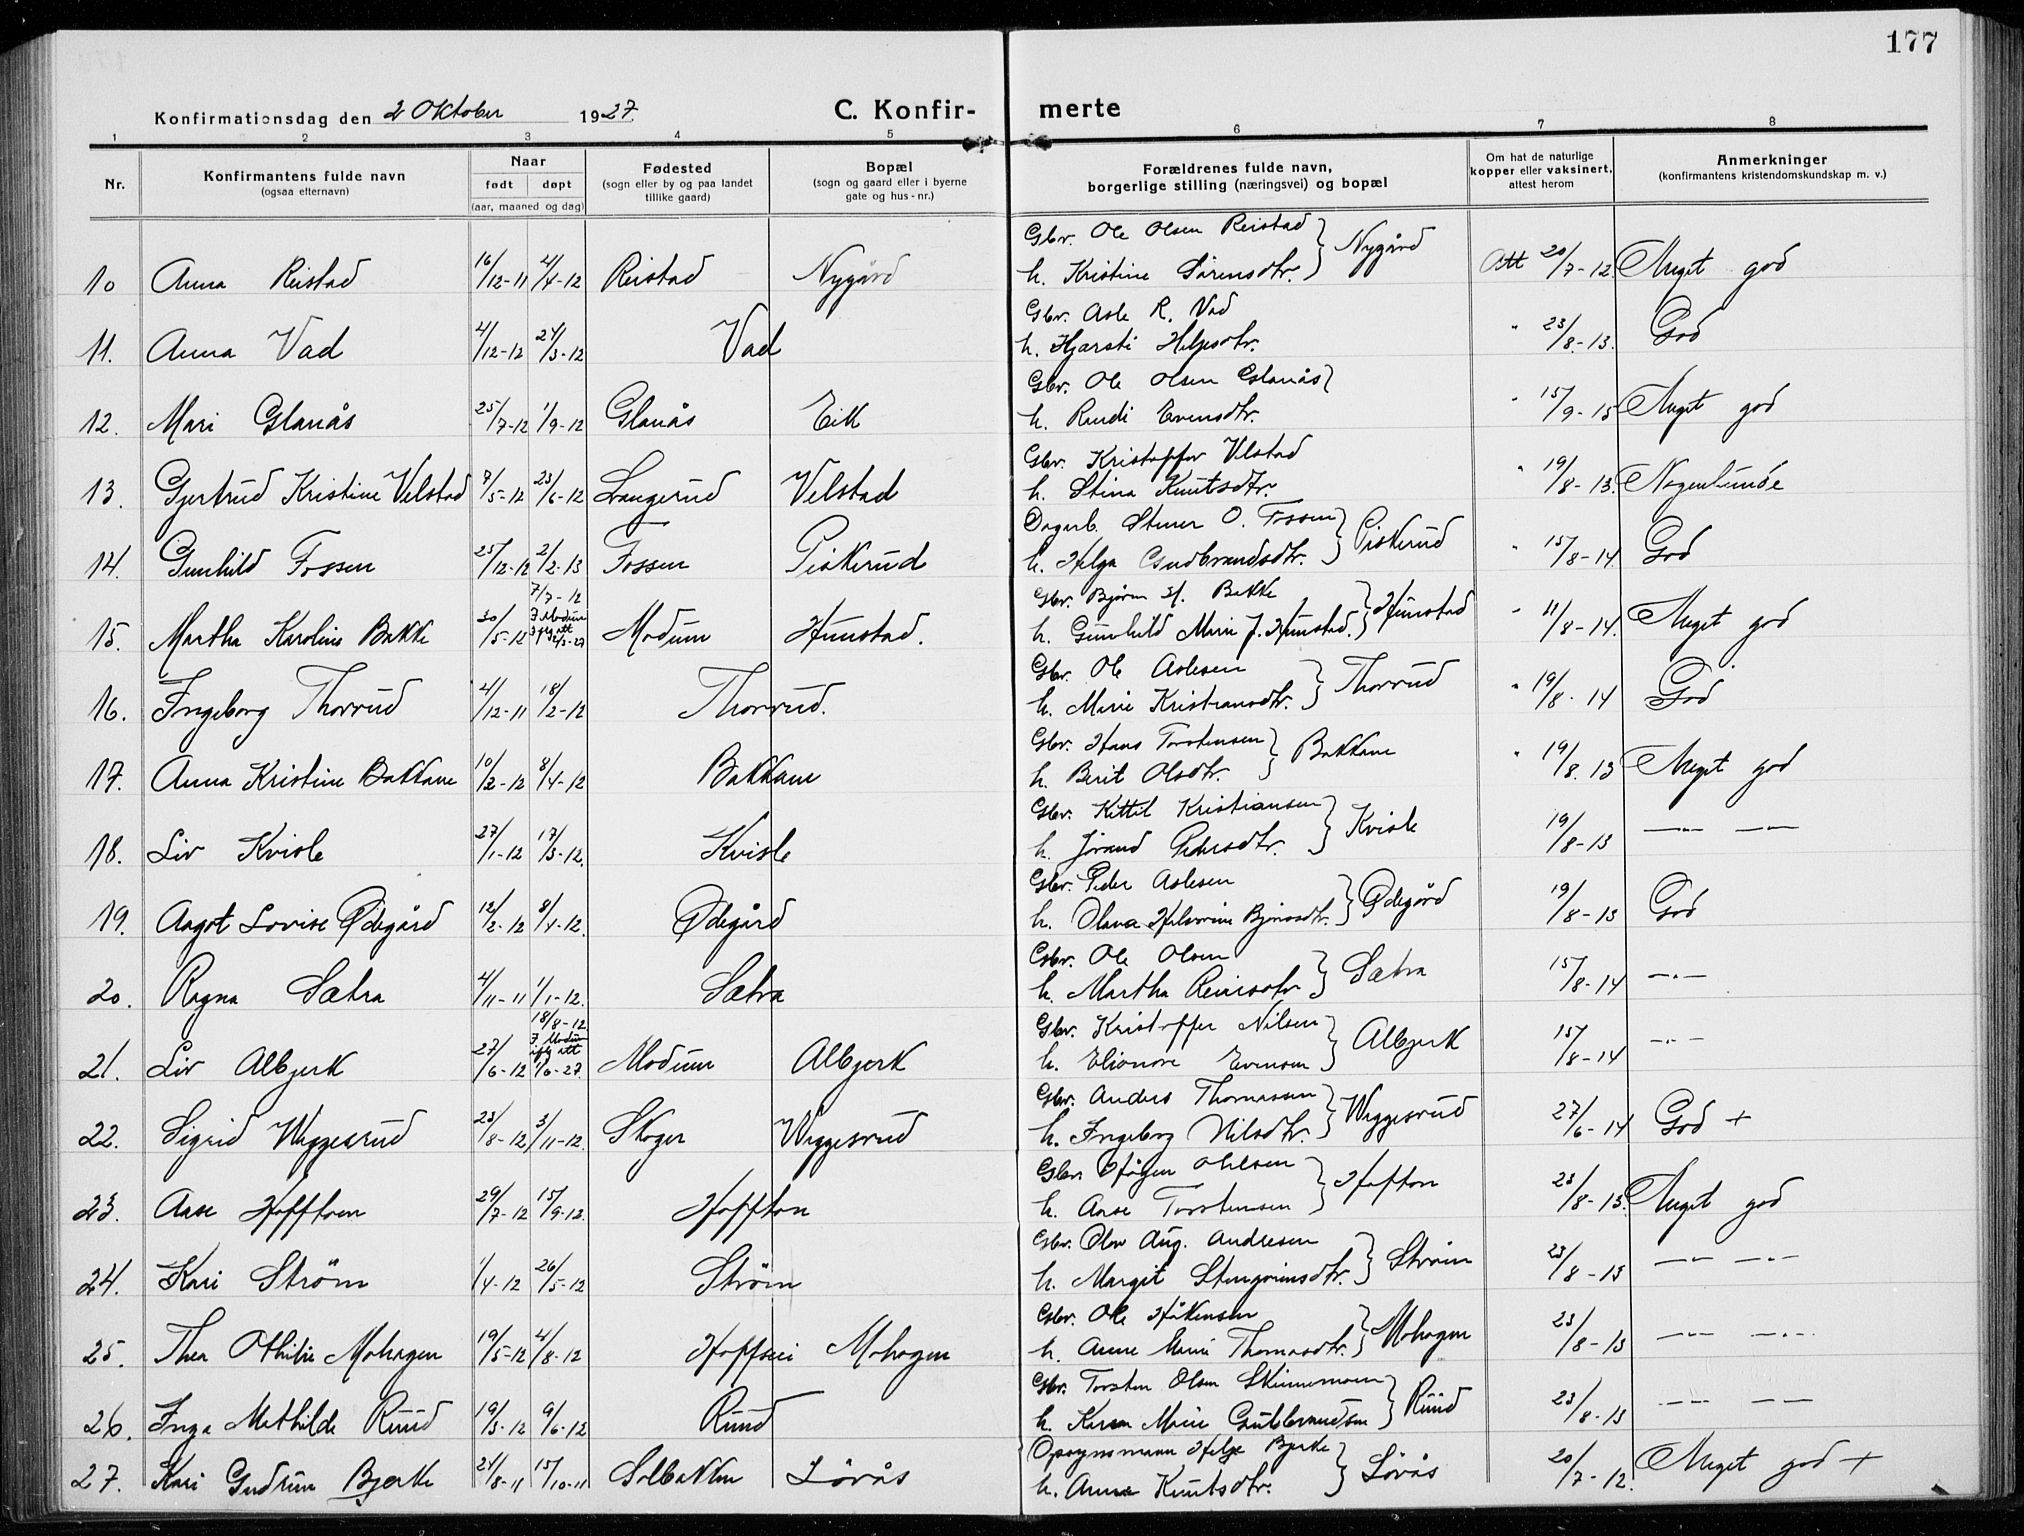 177
Konfirmationsdag den 2 Oktober 1927. C. Konfir- merte
1 2 3 4 5 6 7 8
Nr. Konfirmantens fulde navn (ogsaa efternavn) Naar født døpt (aar, maaned og dag) Fødested (sogn eller by og paa landet tillike gaard) Bopæl (sogn og gaard eller i byerne gate og hus-nr.) Forældrenes fulde navn, borgerlige stilling (næringsvei) og bopæl Om hat de naturlige kopper eller vaksinert, attest herom Anmerkninger (konfirmantens kristendomskundskap m. v.)
Gbr. Ole Olsen Reistad
10 Anna Reistad 16/12-11 4/4-12 Reistad Nygård h. Kristine Sørensdtr. } Nygård Att 20/7-12 Meget god
Gbr. Asle R. Vad
11. Anna Vad 4/12-12 24/3-12 Vad h. Kjersti Helgesdtr. " 23/8-13. God
Gbr. Ole Olsen Glanås }
12. Mari Glanås 25/7-12 1/9-12 Glanås Eik h. Randi Evensdtr. " 15/9-15 Meget god
Gbr. Kristoffer Velstad
13. Gjertrud Kristine Velstad 7/5-12 23/6-12 Langerud Velstad h. Stina Knutsdtr. " 19/8-13. Nogenlunde
Dagarb. Stener O. Fossen
14. Gunhild Fossen 25/12-12 2/2-13 Fossen Piskerud h. Helga Gudbrandsdtr. } Piskerud " 15/8-14 God
7/7-12 Gbr. Bjørn H. Bakke
15. Martha Karoline Bakke 30/5-12 I Modum Modum Hunstad. h. Gunhild Marie J. Hunstad. } Hunstad " 11/8-14. Meget god
Gbr. Ole Aslesen
16. Ingeborg Thorrud 4/12-11 18/2-12 Thorrud. h. Marie Kristiansdtr. } Thorrud " 19/8-14 God
Gbr. Hans Torstensen
17. Anna Kristine Bakkane 10/2-12 8/4-12 Bakkane h. Berit Olsdtr. } Bakkane " 19/8.13 Meget god
Gbr. Kittil Kristiansen
18. Liv Kvisle 27/1-12 17/3-12. Kvisle h. Jørand Pedersdtr. } Kvisle 19/8-13 —"— —"—
Gbr. Peder Aslesen
19. Aagot Lovise Ødegård 12/2-12 8/4-12. Ødegård h. Olava Helverine Bjørnsdtr. } Ødegård 19/8-13 God
Gbr. Ole Olsen
20. Ragna Sætra 4/11-11 1/1-12. Sætra h. Martha Reiersdtr } Sætra 15/8-14 —"—
18/8-12 Gbr. Kristoffer Nilsen
21. Liv Albjerk 27/6-12 I Modum iflg att 1/6-27. Modum Albjerk h. Elionore Evensen } Albjerk 15/8-14 —"—
Gbr. Anders Thomassen
22. Sigrid Wæggesrud 23/8-12 3/11-12. Skoger Wæggesrud h. Ingeborg Nilsdtr. } Wæggesrud 27/6-14 God +
Gbr. Hågen Ohlsen
23. Aase Hofftoen 29/7-12 15/9-12. Hoffton h. Aase Torstensen } Hofton 23/8-13. Meget god
Gbr. Olav Aug. Andresen
24. Kari Strøm 1/4-12 26/5-12 Strøm h. Margit Stengrimsdtr. } Strøm 23/8-13 —"— —"—
Gbr. Ole Håkensen
25. Thea Othilie Mohagen 19/5-12 4/8-12 Hoffsei Mohagen h. Anne Marie Thomasdtr. } Mohagen 23/8-13 —"— —"—
Gbr. Torsten Olsen Skinnemoen
26. Inga Mathilde Ruud 19/3-12 9/6-12 Ruud h. Karen Marie Gulbrandsen } Ruud 23/8-13 —"— —"—
Opsynsmann Helge Bjerke
27. Kari Gudrun Bjerke 24/8-11 15/10-11 Solbakken Løvås h. Anna Knutsdtr. } Løvås 20/7-12. Meget god +